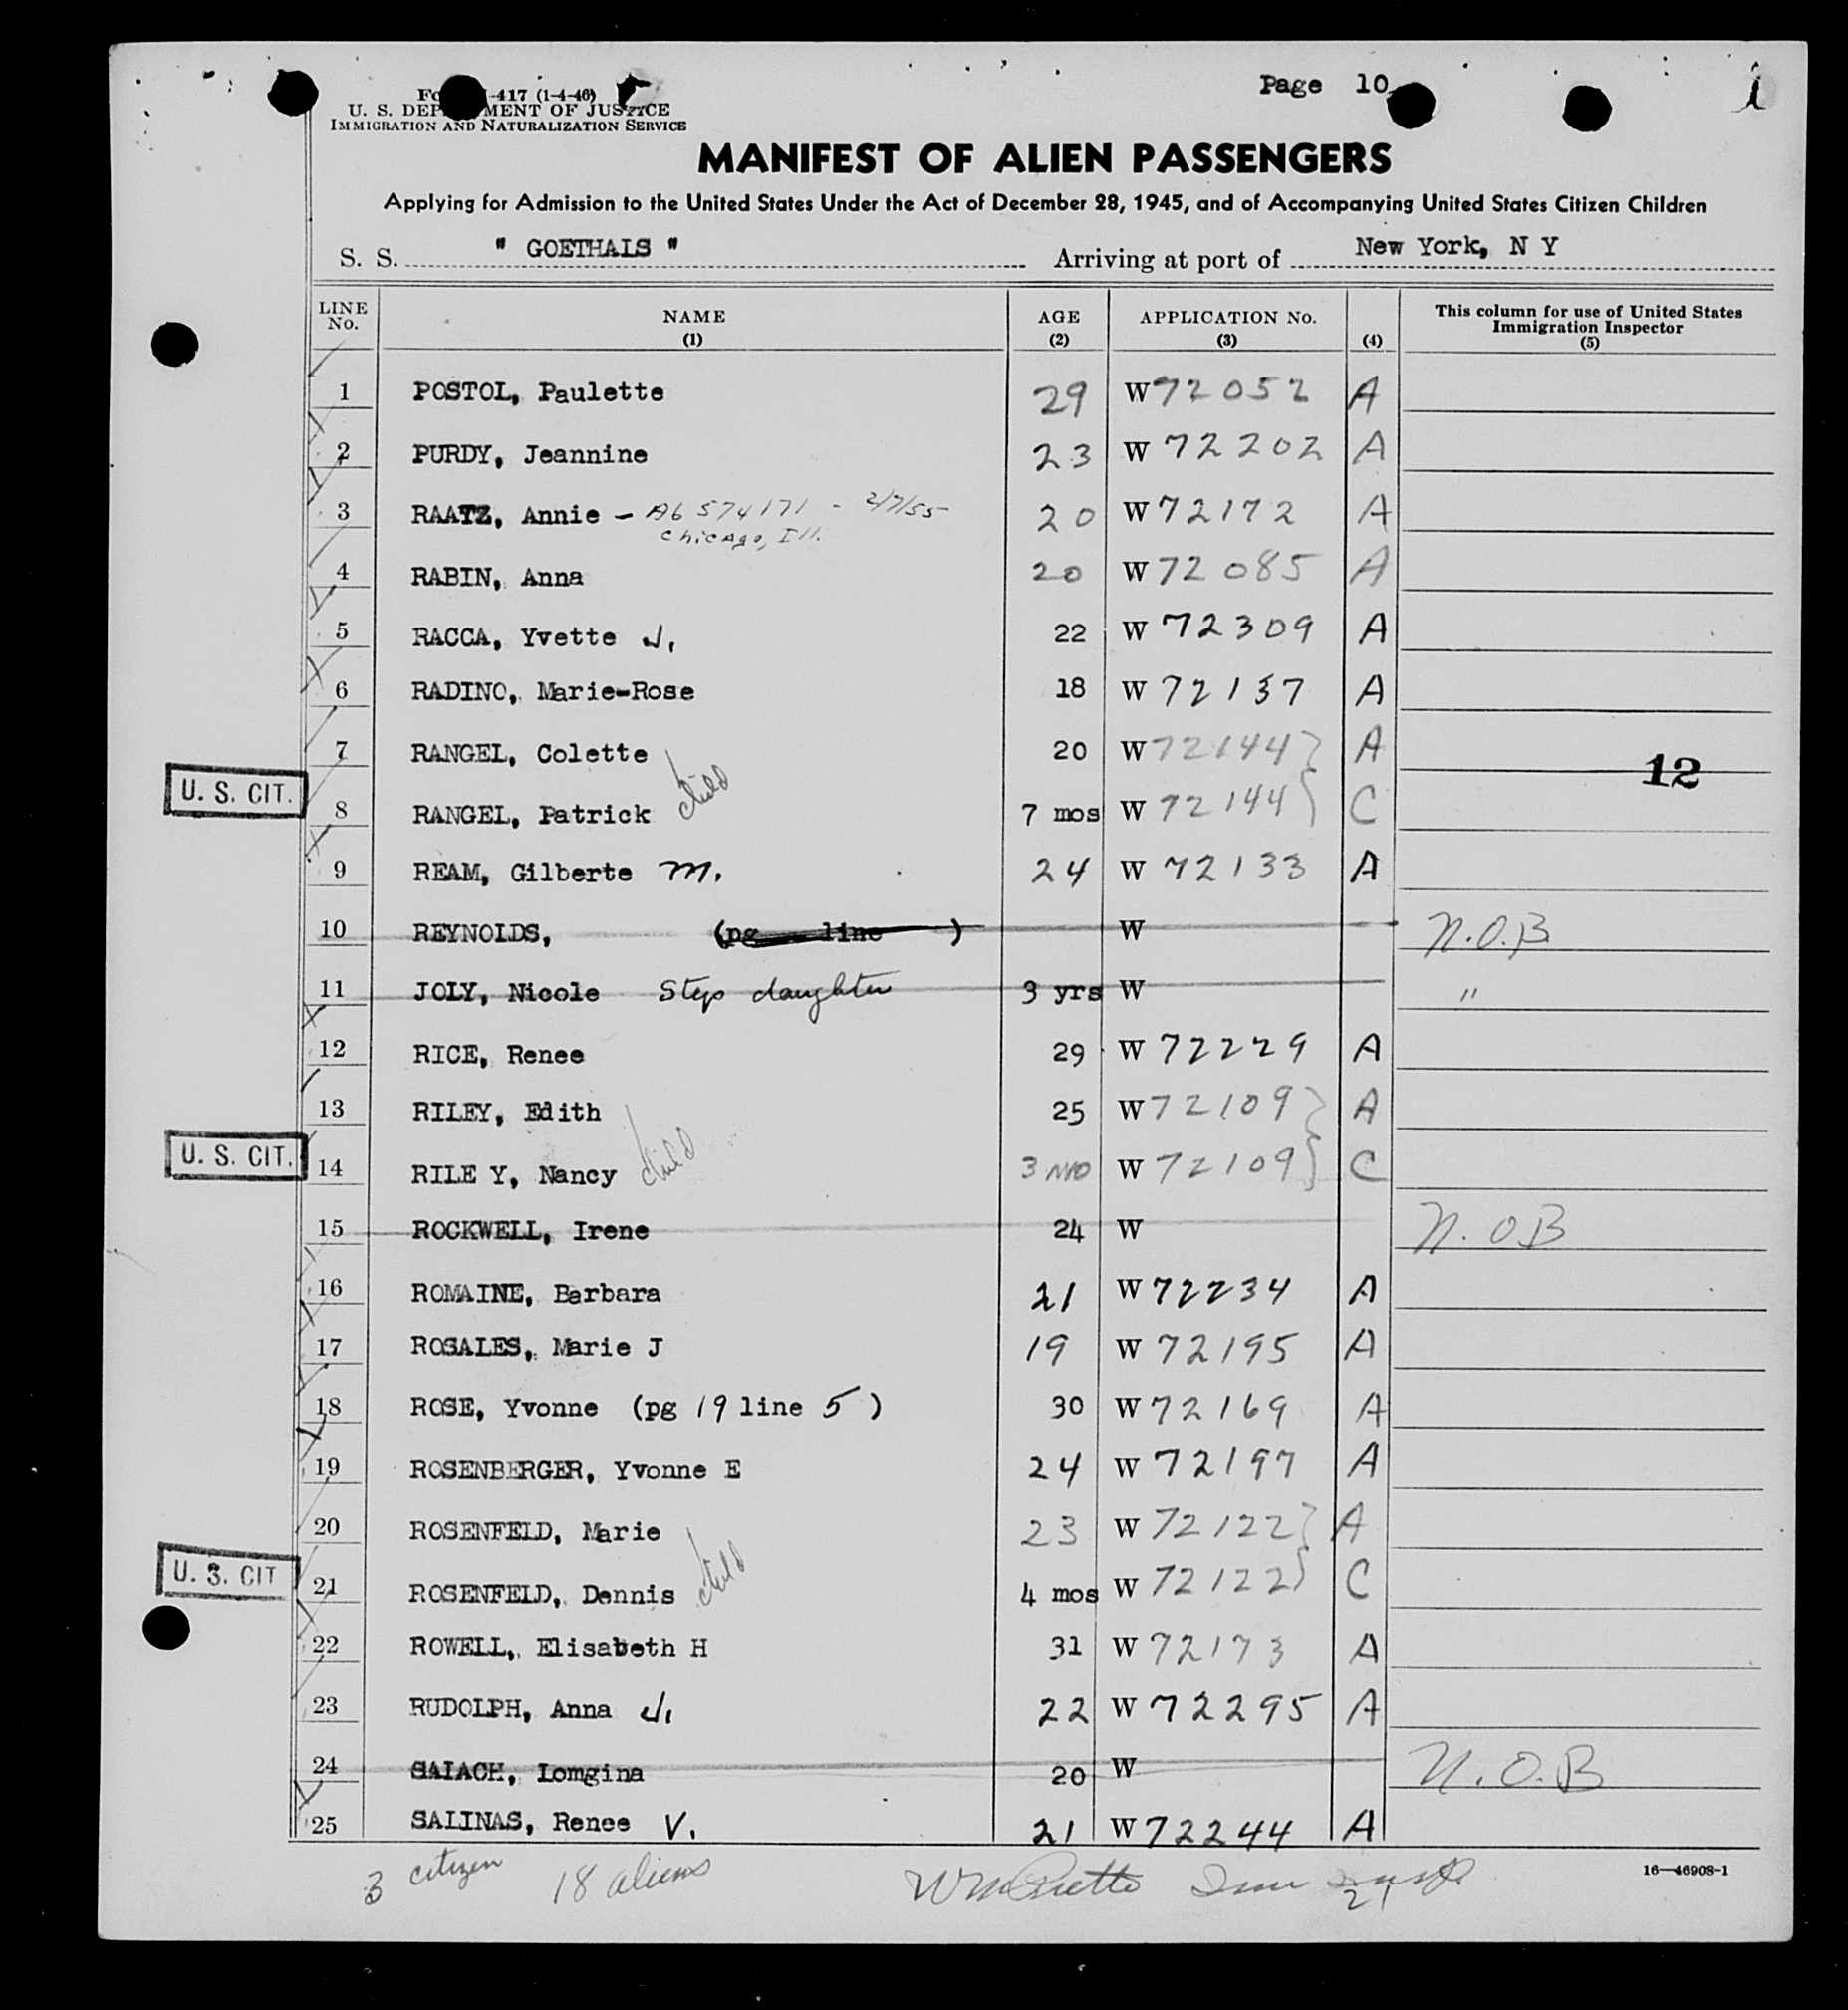 Page 10
i
-417 (1-4-46)
U. S. DEP MENT OF JUSTICE
IMMIGRATION AND NATURALIZATION SERVICE
MANIFEST OF ALIEN PASSENGERS
Applying for Admission to the United States Under the Act of December 28, 1945, and of Accompanying United States Citizen Children
S. S. " GOETHALS " Arriving at port of New York, N Y
LINE No. NAME (1) AGE (2) APPLICATION No. (3) (4) This column for use of United States Immigration Inspector (5)
1 POSTOL, Paulette 29 W72052 A
2 PURDY, Jeannine 23 W 72202 A
3 RAATZ, Annie - A6 574171 - 2/7/55 20 W72172 A
Chicago, Ill.
4 RABIN, Anna 20 W72085 A
5 RACCA, Yvette J. 22 W 72309 A
6 RADINO, Marie-Rose 18 W 72137 A
7 RANGEL, Colette 20 W72144 A
12
U. S. CIT. 8 RANGEL, Patrick child 7 mos W 72144 C
9 REAM, Gilberte M. 24 W 72133 A
10 REYNOLDS, (pg line ) W N.O.B
11 JOLY, Nicole Step daughter 3 yrs W "
12 RICE, Renee 29 W 72229 A
13 RILEY, Edith 25 W72109 A
U. S. CIT. 14 RILE Y, Nancy child 3 mo W 72109 C
15 ROCKWELL, Irene 24 W N. OB
16 ROMAINE, Barbara 21 W 72234 A
17 ROSALES, Marie J 19 W 72195 A
18 ROSE, Yvonne (pg 19 line 5 ) 30 W 72169 A
19 ROSENBERGER, Yvonne E 24 W 72197 A
20 ROSENFELD, Marie 23 W 72122 A
U. S. CIT 21 ROSENFELD, Dennis child 4 mos W 72122 C
22 ROWELL, Elisabeth H 31 W 72173 A
23 RUDOLPH, Anna J. 22 W 72295 A
24 SAIACH, Lomgina 20 W N.O.B
25 SALINAS, Renee V. 21 W 72244 A
16—46908-1
3 citizen 18 aliens
21